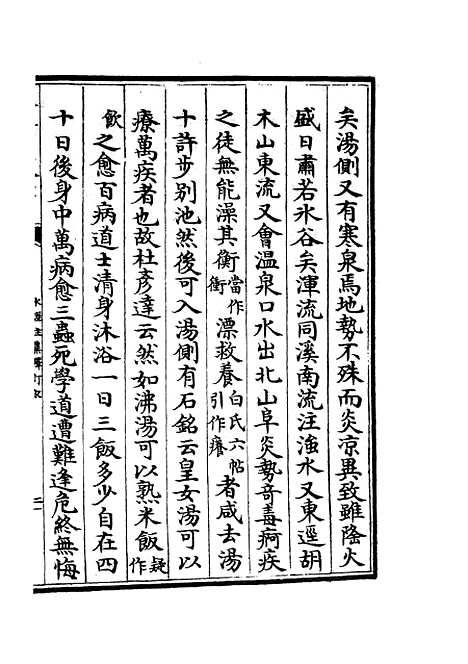 矣湯側又有寒泉焉地勢不殊而炎凉異致雖隆火
盛日肅若氷谷矣渾流同溪南流注滍水又東逕胡
木山東流又會温泉口水出北山阜炎勢奇毒痾疾
之徒無能澡其衡當作衝漂救養白氏六帖引作癢者咸去湯
十許步别池然後可入湯側有石銘云皇女湯可以
療萬疾者也故杜彥達云然如沸湯可以熟米飯疑作
飲之愈百病道士清身沐浴一日三飯多少自在四
十日後身中萬病愈三蟲死學道遭難逢危終無悔
水經注集釋訂訛